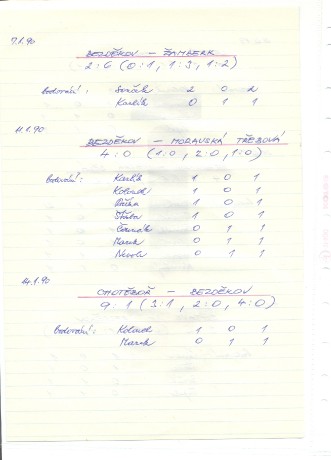 7.1.90
BEZDĚKOV – ŽAMBERK
2:6 (0:1, 1:3, 1:2)
Bodování: Sončák 2 0 2
Karlík 0 1 1
11.1.90
BEZDĚKOV – MORAVSKÁ TŘEBOVÁ
4:0 (1:0, 2:0, 1:0)
Bodování: Karlík 1 0 1
1 0 1
1 0 1
1 0 1
0 1 1
Marek 0 1 1
0 1 1
14.1.90
CHOTĚBOŘ – BEZDĚKOV
9:1 (3:1, 2:0, 4:0)
Bodování: 1 0 1
Marek 0 1 1